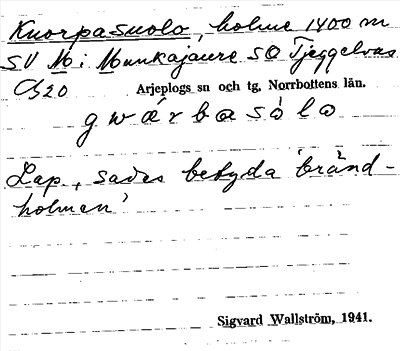 Kuorpasuolo, holme 1400 m
SV M i Munkajaure SO Tjeggelvas
Cb20 Arjeplogs sn och tg, Norrbottens län.
gwárbasòlo
Lap., sades betyda 'bränd-
holmen'
Sigvard Wallström, 1941.